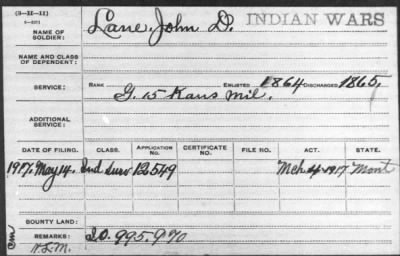 (3-H-11)
NAME OF SOLDIER: Lane, John D. INDIAN WARS
NAME AND CLASS OF DEPENDENT:
SERVICE: RANK ENLISTED 1864 DISCHARGED 1865,
G. 15 Kans Mil.
ADDITIONAL SERVICE:
DATE OF FILING. CLASS. APPLICATION NO. CERTIFICATE NO. FILE NO. ACT. STATE.
1917, May 14. Ind Surv 12549 Mch 4-1917 Mont
BOUNTY LAND:
REMARKS: S.O. 995.970